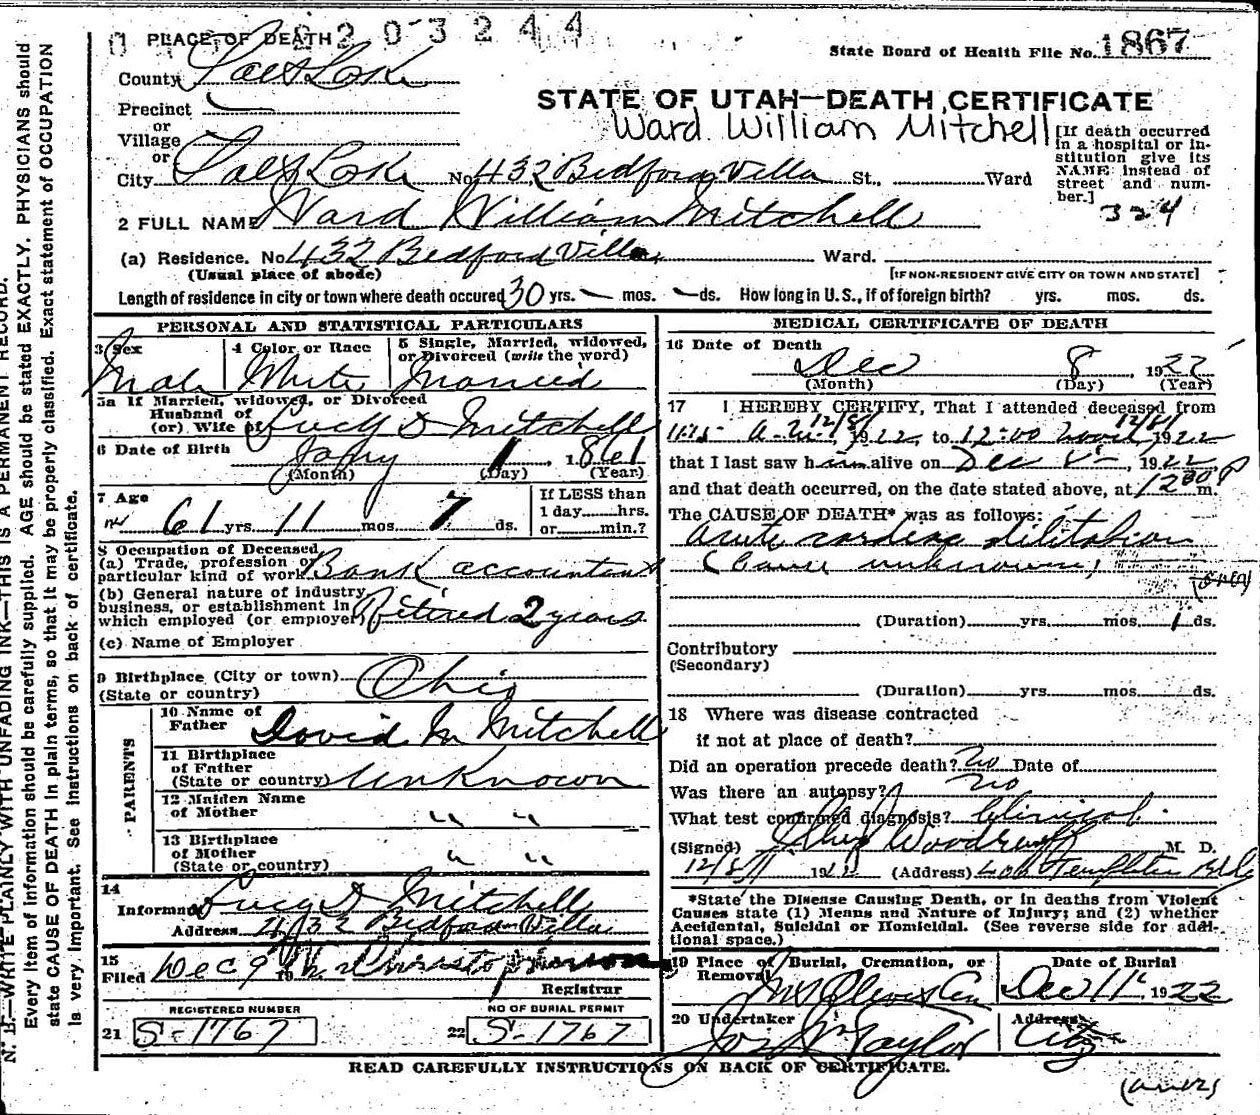 PLACE OF DEATH 2 0 3 2 4 4
State Board of Health File No. 1867
County Salt Lake
STATE OF UTAH—DEATH CERTIFICATE
Precinct
or
Village
Ward William Mitchell
or
City Salt Lake No. 432 Bedford Villa St., Ward
[If death occurred in a hospital or in-
stitution give its
NAME instead of
street and num-
ber.]
324
2 FULL NAME Ward William Mitchell
(a) Residence. No. 432 Bedford Villa Ward.
(Usual place of abode)
[IF NON-RESIDENT GIVE CITY OR TOWN AND STATE]
Length of residence in city or town where death occured 30 yrs. — mos. — ds. How long in U. S., if of foreign birth? yrs. mos. ds.
PERSONAL AND STATISTICAL PARTICULARS
3 Sex
Male
4 Color or Race
White
5 Single, Married, widowed,
or Divorced (write the word)
Married
5a If Married, widowed, or Divorced
Husband of
(or) Wife of Lucy D Mitchell
6 Date of Birth Jany 1, 1861
(Month) (Day) (Year)
7 Age
61 yrs. 11 mos. 7 ds.
If LESS than
1 day hrs.
or min.?
8 Occupation of Deceased
(a) Trade, profession or
particular kind of work Bank accountant
(b) General nature of industry
business, or establishment in
which employed (or employer) Retired 2 years
(c) Name of Employer
9 Birthplace (City or town)
(State or country) Ohio
PARENTS
10 Name of
Father David M Mitchell
11 Birthplace
of Father
(State or country) Unknown
12 Maiden Name
of Mother " "
13 Birthplace
of Mother
(State or country) " "
14
Informant Lucy D Mitchell
Address 432 Bedford Villa
15
Filed Dec 9 19
Registrar
REGISTERED NUMBER
21 S-1767
NO OF BURIAL PERMIT
22 S-1767
MEDICAL CERTIFICATE OF DEATH
16 Date of Death
Dec 8, 1922
(Month) (Day) (Year)
17 I HEREBY CERTIFY, That I attended deceased from
11:15 A.M. 12/8/ 1922, to 12:00 noon 12/8/ 1922
that I last saw him alive on Dec 8, 1922
and that death occurred, on the date stated above, at 12 00 P m.
The CAUSE OF DEATH* was as follows:
acute cardiac dilitation
(Cause unknown)
(over)
(Duration) yrs. mos. 1 ds.
Contributory
(Secondary)
(Duration) yrs. mos. ds.
18 Where was disease contracted
if not at place of death?
Did an operation precede death? no Date of
Was there an autopsy? no
What test confirmed diagnosis? Clinical
(Signed) Woodruff M. D.
12/8/ 1922 (Address) 406 Templeton Bldg
*State the Disease Causing Death, or in deaths from Violent
Causes state (1) Means and Nature of Injury; and (2) whether
Accidental, Suicidal or Homicidal. (See reverse side for addi-
tional space.)
19 Place of Burial, Cremation, or
Removal Mt Olivet Cem
Date of Burial
Dec 11 1922
20 Undertaker
Jos Wm Taylor
Address
City
READ CAREFULLY INSTRUCTIONS ON BACK OF CERTIFICATE.
(over)
N. B.—WRITE PLAINLY WITH UNFADING INK—THIS IS A PERMANENT RECORD.
Every item of information should be carefully supplied. AGE should be stated EXACTLY. PHYSICIANS should
state CAUSE OF DEATH in plain terms, so that it may be properly classified. Exact statement of OCCUPATION
is very important. See instructions on back of certificate.